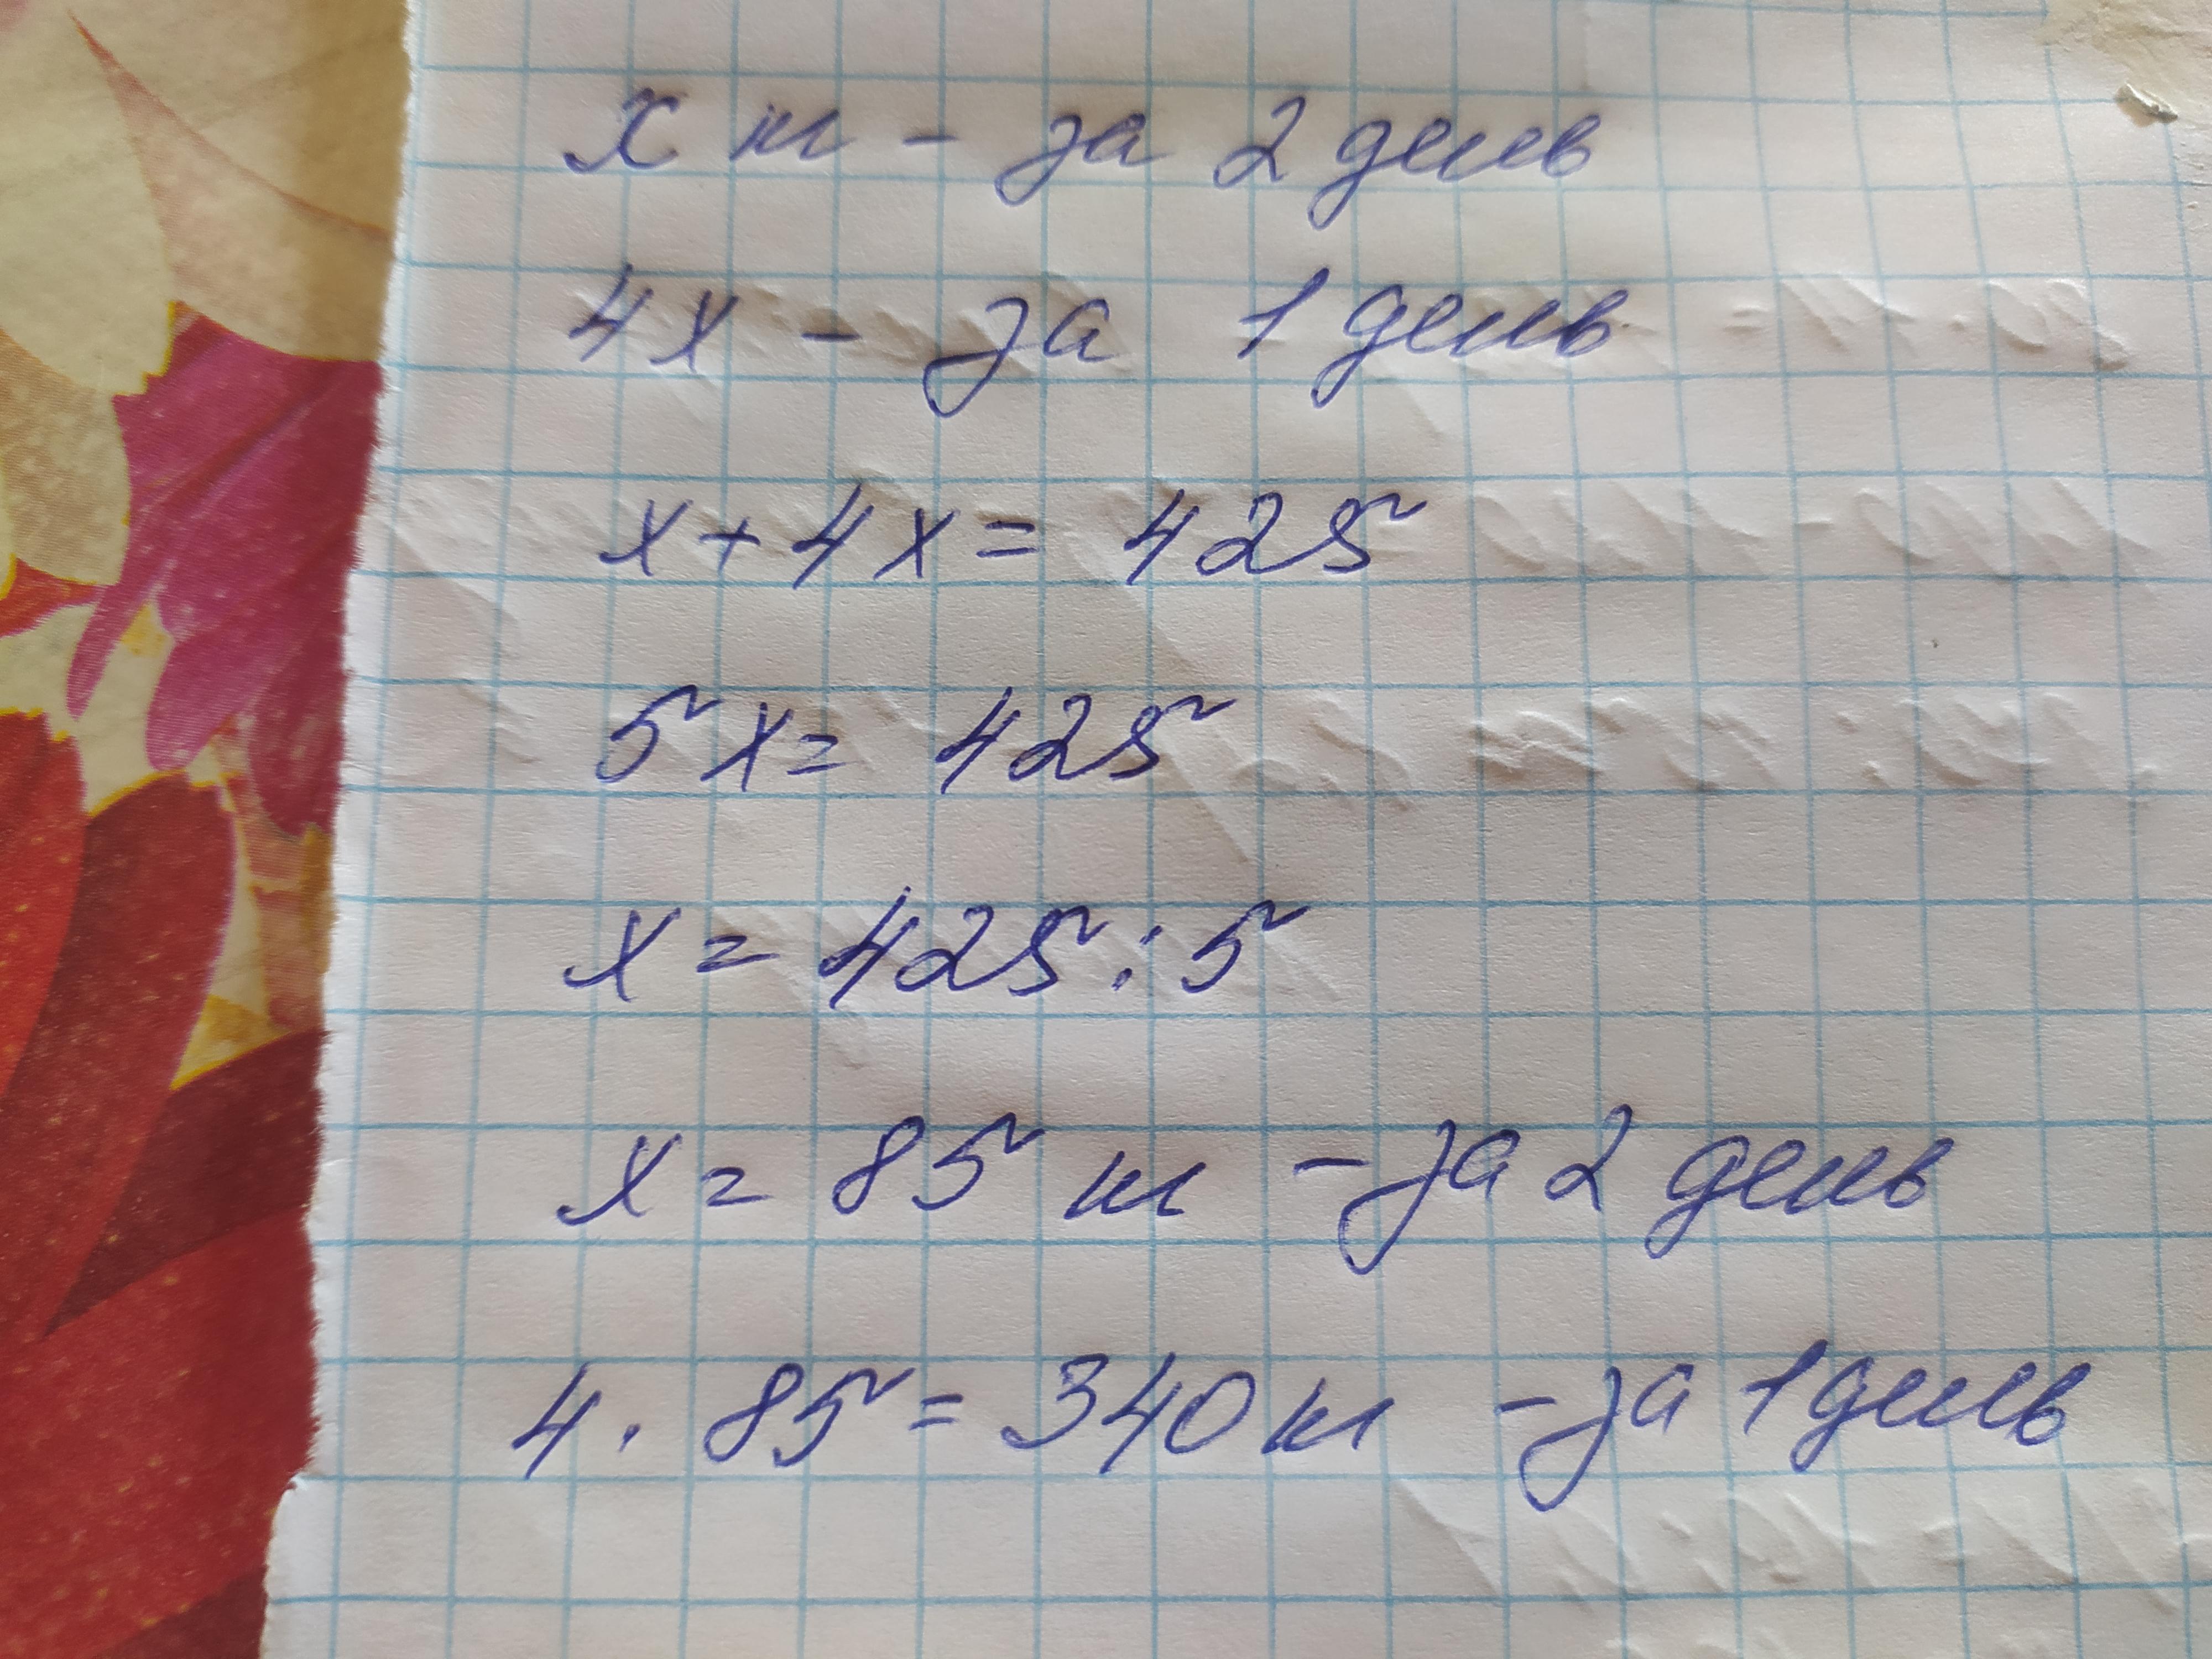 x кг - за 2 день
4x - за 1 день
x + 4x = 425
5x = 425
x = 425 : 5
x = 85 кг - за 2 день
4 . 85 = 340 кг - за 1 день